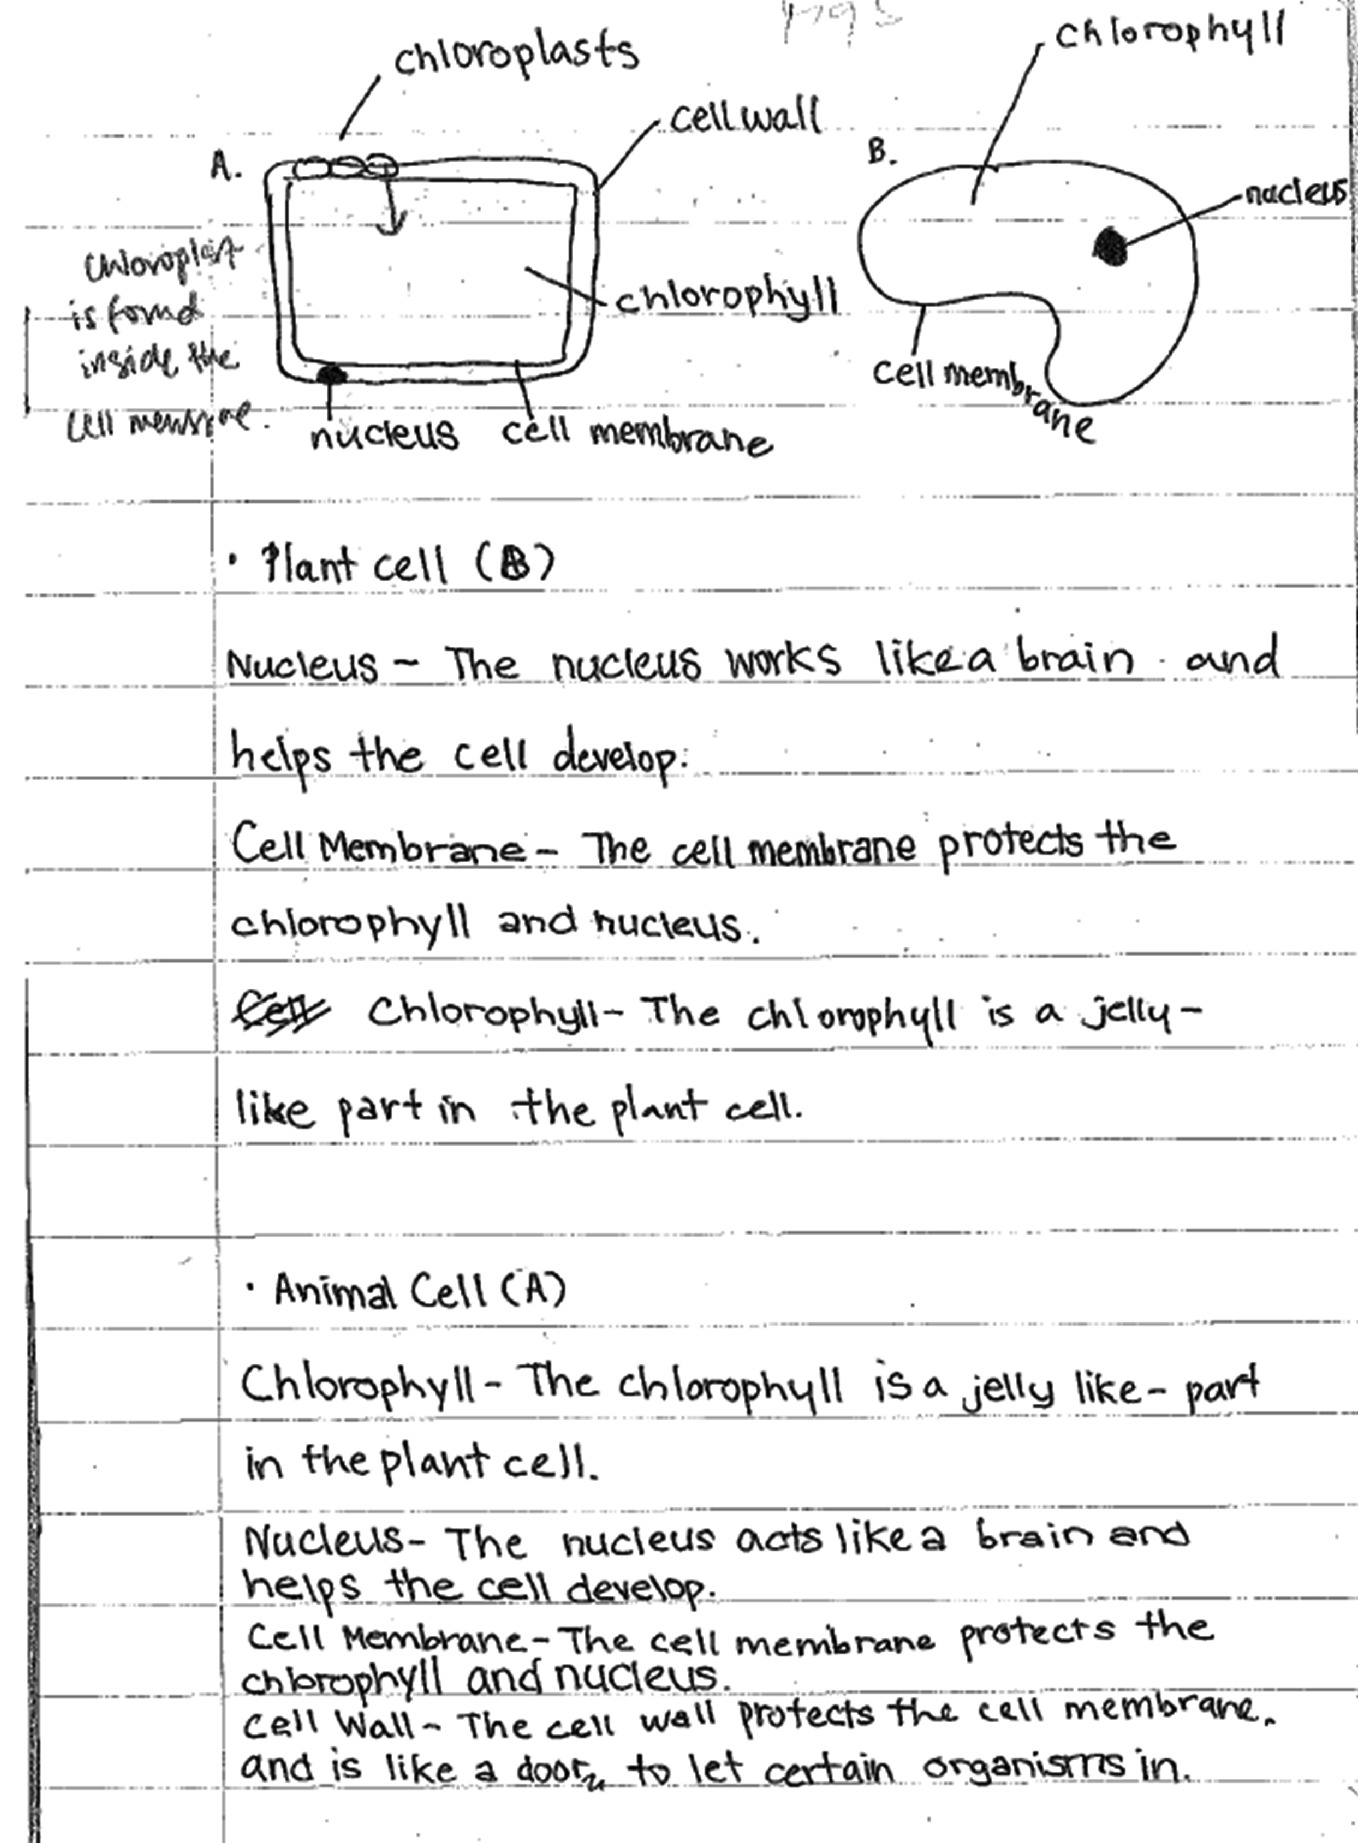 chloroplasts
chlorophyll
cell wall
A.
B.
nucleus
chloroplast
is found
inside the
cell
chlorophyll
cell membrane
nucleus
cell membrane
· Plant cell (B)
Nucleus - The nucleus works like a brain and
helps the cell develop.
Cell Membrane - The cell membrane protects the
chlorophyll and nucleus.
Cell Chlorophyll - The chlorophyll is a jelly-
like part in the plant cell.
· Animal Cell (A)
Chlorophyll - The chlorophyll is a jelly like- part
in the plant cell.
Nucleus - The nucleus acts like a brain and
helps the cell develop.
Cell Membrane - The cell membrane protects the
chlorophyll and nucleus.
Cell Wall - The cell wall protects the cell membrane.
and is like a door, to let certain organisms in.